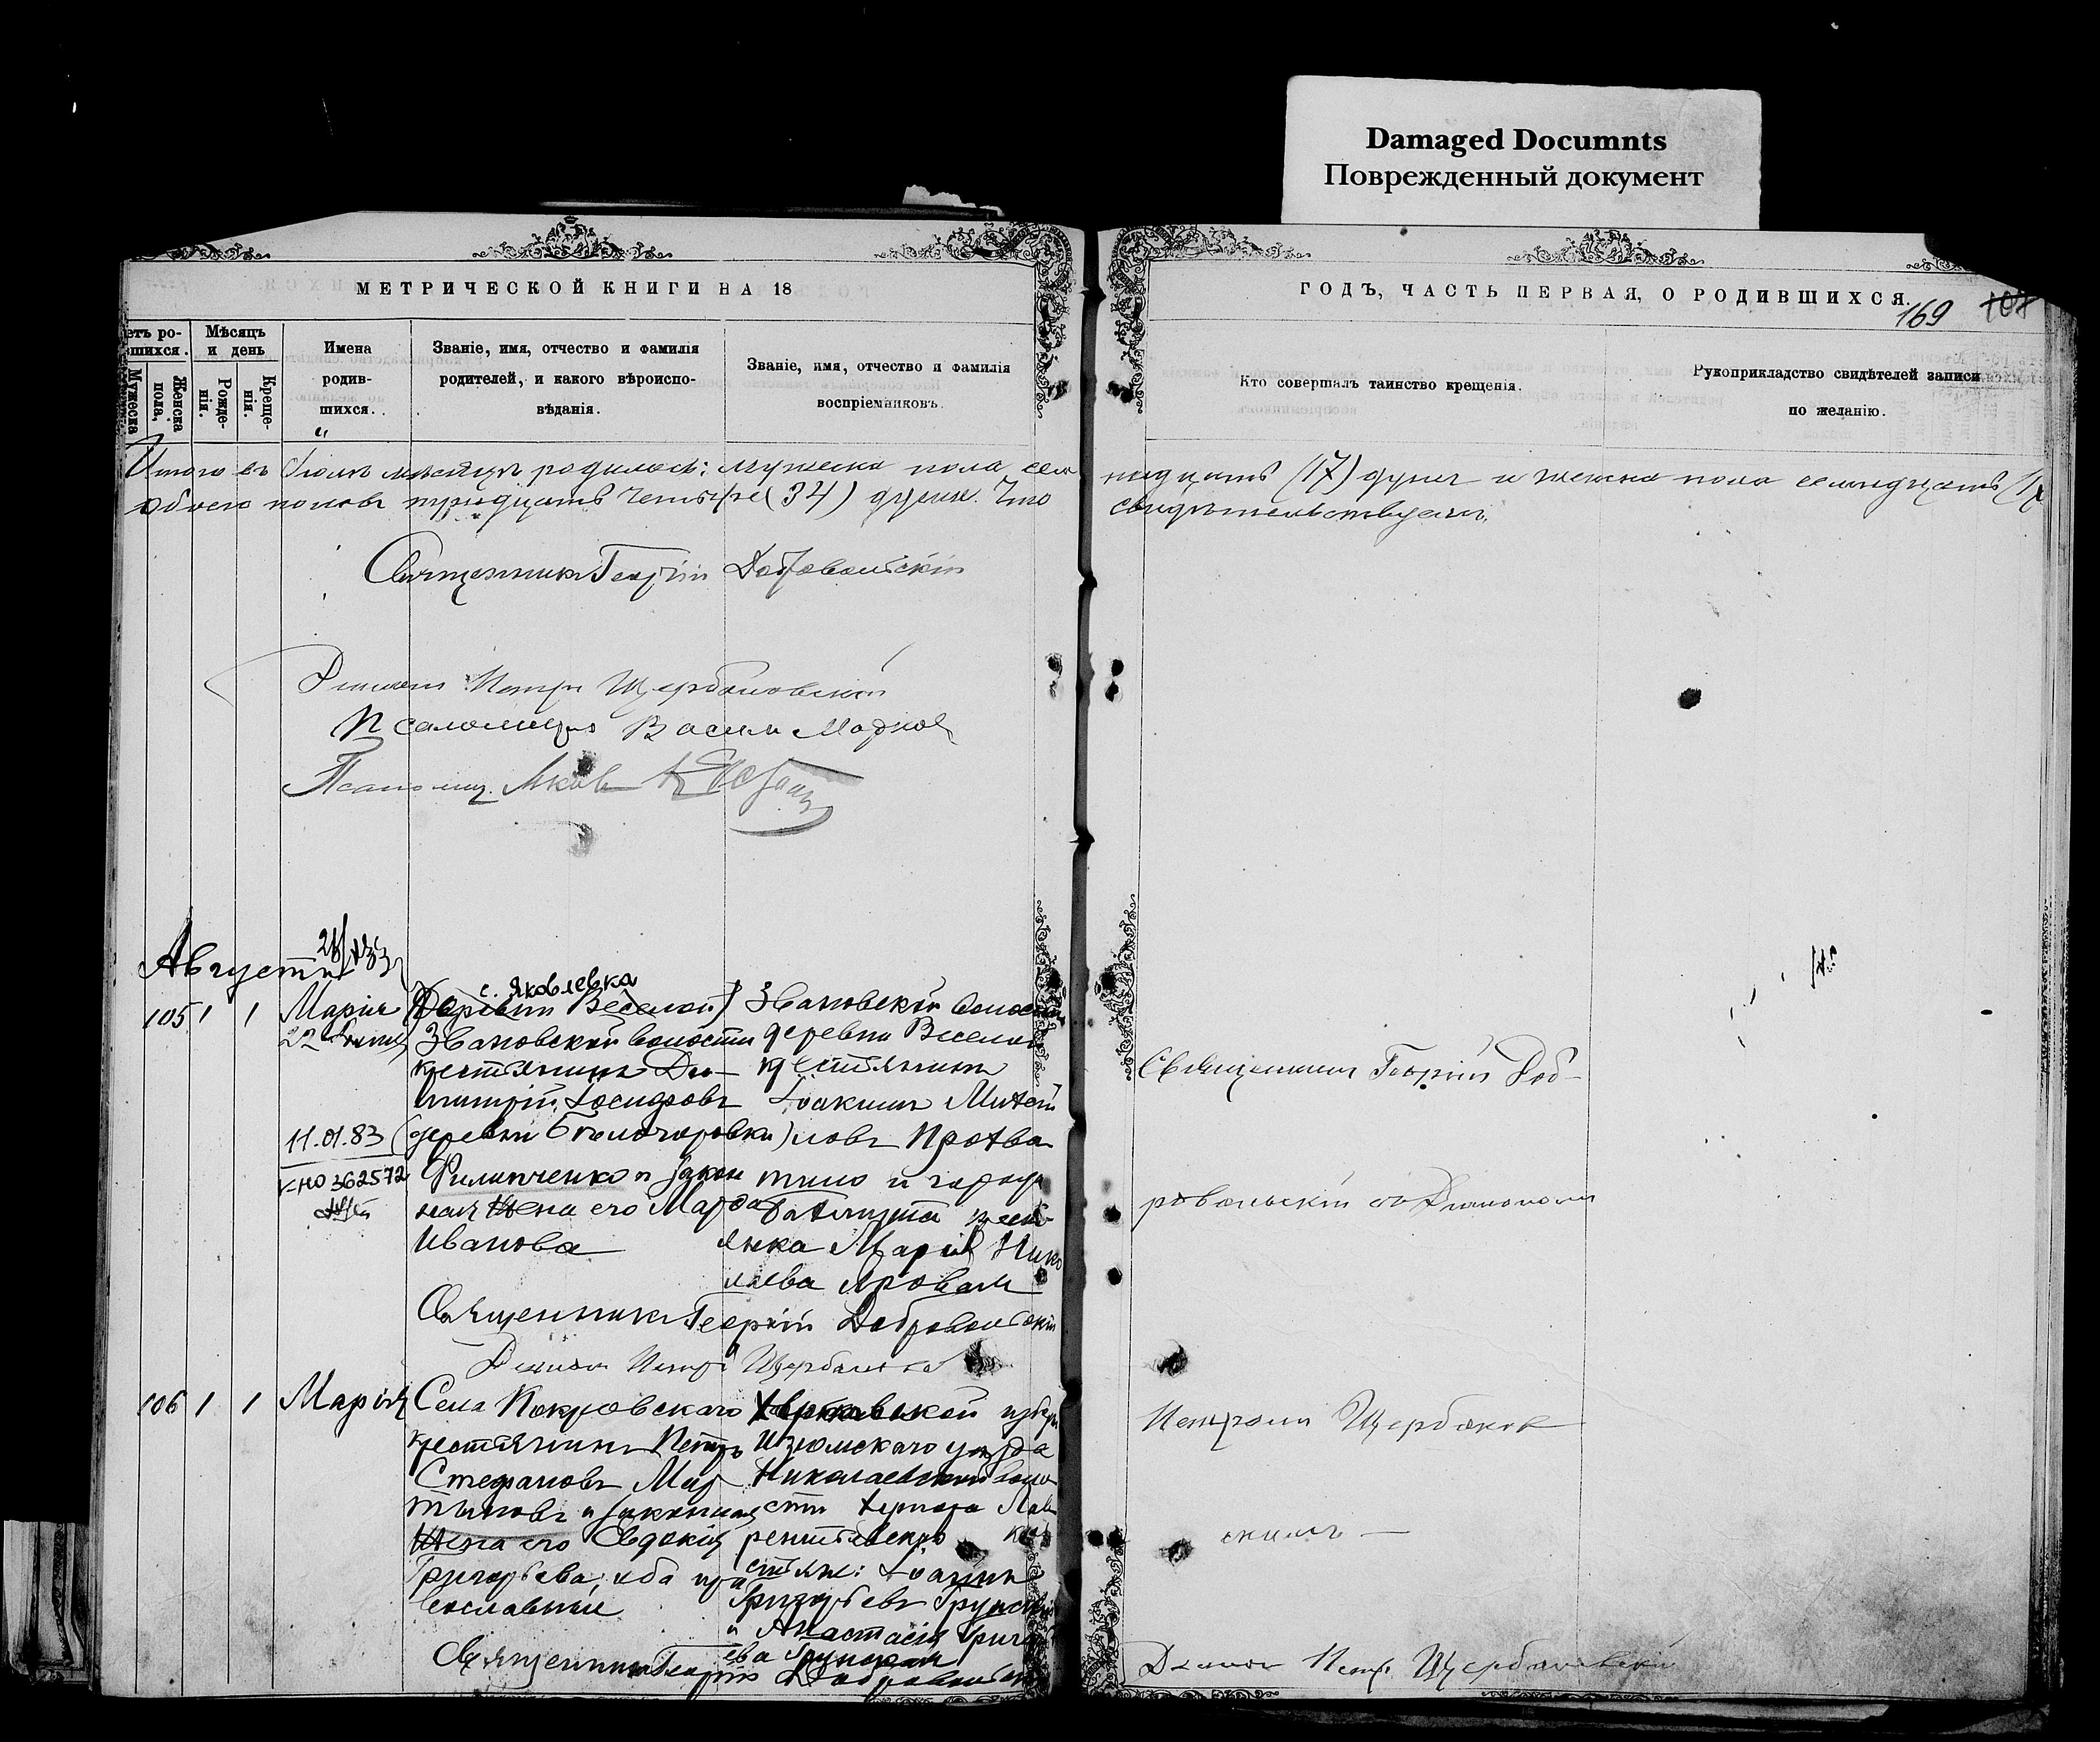 Damaged Documnts
Поврежденный документ
МЕТРИЧЕСКОЙ КНИГИ НА 18
ГОДЪ, ЧАСТЬ ПЕРВАЯ, О РОДИВШИХСЯ.
169
етъ ро-
вшихся.
Мужеска
Женска пола,
Мѣсяцъ и день
Рожде-нія.
Креще-нія.
Имена родив-шихся.
Званіе, имя, отчество и фамилія
родителей, и какого вѣроиспо-
вѣданія.
Званіе, имя, отчество и фамилія
воспріемниковъ.
Кто совершалъ таинство крещенія.
Рукоприкладство свидѣтелей записи
по желанію.
Итого въ Іюлѣ мѣсяцѣ родилось: мужеска пола сем
надцать (17) душъ и женска пола семнадцать (17
Обоего половъ тридцать четыре (34) душъ. Что
свидѣтельствуемъ.
Священникъ Георгій Добровольскій
Діаконъ Петръ Щербановскій
Псаломщ. Яковъ
Августъ
105 1 1 Марія
с. Яковлевка
(Деревни Веселой)
Звановской волости
крестьянинъ Ди-
митрій Іосифовъ
(деревни Бѣлогоровки)
Филипченко и закон
ная жена его Марѳа
Иванова
11.01.83
362572
Звановской волости
деревни Веселой
крестьянинъ
Іоакимъ
Марія Нико
лаева Яровая
Священникъ Георгій Доб-
ровольскій съ Діакономъ
Священникъ Георгій Добровольскій
Діаконъ Петръ
106 1 1 Марія
Села Покровскаго
крестьянинъ Петръ
Стефановъ Мар
тыновъ и законная
жена его Евдокія
Григорьева, оба пра
вославные
Харьковской губер
Изюмскаго уѣзда
Николаевской воло
сти хутора Лав
рентьевскаго кре
стьяне: Іоаннъ
Григорьевъ
и Анастасія Григорь
ева
Петромъ Щербанов
скимъ —
Священникъ Георгій Добровольскій
Діаконъ Петръ Щербановскій